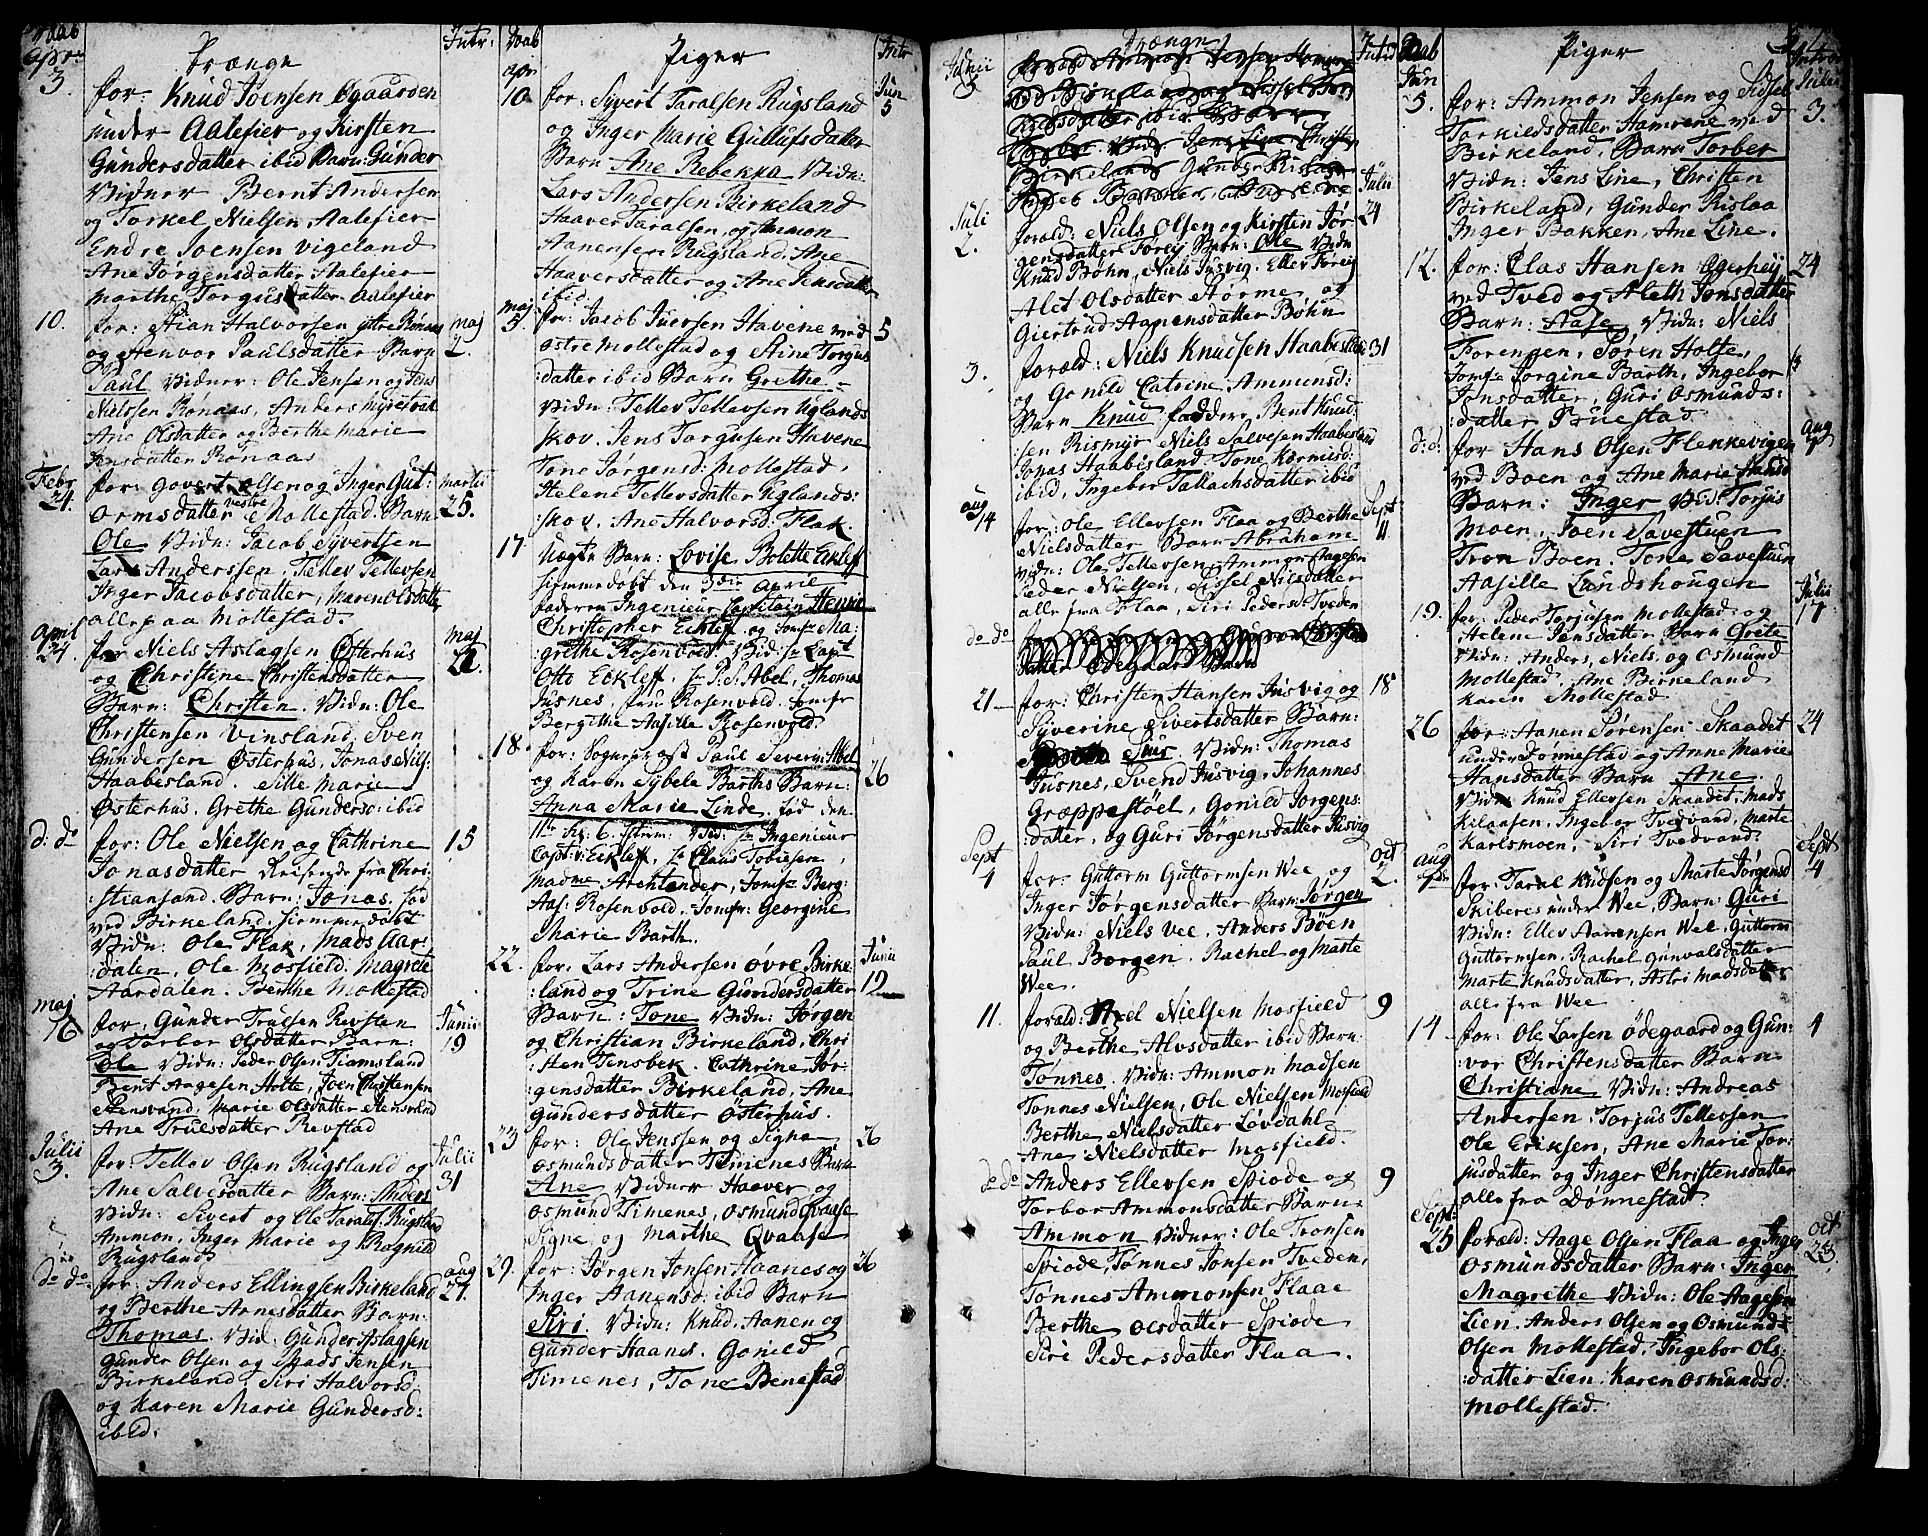 Daab
Drænge
Intr:
Apr:
3.
for: Knud Joensen Øgaarden
under Aalefier og Kirsten
Gundersdatter ibid Barn: Gunder
Vidner Bernt Andersen
og Torkel Nielsen Aalefier
Endre Joensen Vigeland
Ane Jørgensdatter Aalefier
Marthe Torgusdatter Aalefier
10.
for: Stian Halvorsen yttre Rønaas
Maj
2.
og Stenvor Paulsdatter Barn
Paul Vidner: Ole Jensen og Jens
Nielssen Rønaas, Anders Myrestrak
Ane Olsdatter og Berthe Marie
Jensdatter Rønaas
Febr
24.
for: Govert Olsen og Inger Gut:
Martii
25.
ormsdatter vestre Mollestad. Barn
Ole Vidn: Jacob Syvertsen
Lars Anderssen, Tellev Tellevsen
Inger Jacobsdatter, Maren Olsdatter
alle paa Mollestad.
April
24.
for Niels Aslagsen Østerhus
Maj
22.
og Christine Christensdatter
Barn: Christen. Vidn: Ole
Christensen Vinsland, Sven
Gundersen Østerhus, Jonas Niels:
Haabesland. Sille Marie
Østerhus, Grethe Gundersd: ibid
d: do
for: Ole Nielsen og Cathrine
15
Jonasdatter Reisende fra Chri:
stiansand. Barn: Jonas, fød
ved Birkeland, hiemmedøbt
Vidn: Ole Flak, Mads Aar:
dalen, Ole Mosfield. Magrete
Aardalen. Berthe Mollestad
Maj
16
for: Gunder Trulsen Revsten
Junii
19
og Torbor Olsdatter, Barn:
Ole Vidn: Peder Olsen Tiamsland
Bent Aagesen Holte, Joen Christensen
Stensvand, Marie Olsdatter Stensvand
Ane Trulsdatter Revstad
Julii
3.
for: Tellev Olsen Rugsland og
Julii
31
Ane Salvesdatter Barn: Anders
Vidn: Sivert og Ole Taralds: Rugsland
Ammon, Inger Marie og Ragnild
Rugsland
do do
for: Anders Ellingsen Birkeland
Aug
27.
og Berthe Arnesdatter Barn:
Thomas. Vid. Gunder Aslagsen
Gunder Olsen og Mads Jensen
Birkeland, Siri Halvorsd:
og Karen Marie Gundersd:
ibid.
Daab
Piger
Intr
Apr
10.
for: Syvert Taralsen Rugsland
Jun
5
og Inger Marie Gullufsdatter
Barn Ane Rebekka Vidn:
Lars Andersen Birkeland
Haaver Taralsen, og Ammon
Aanensen Rugsland, Ane
Haaversdatter og Ane Jensdatter
ibid.
Maj
5.
for: Jacob Juersen Havene ved
5
østre Mollestad og Stine Torgus
:datter ibid Barn Grethe.
Vidn: Tellev Tellevsen Uglands
skov. Jens Torgusen Havene
Tone Jørgensd: Mollestad,
Helene Tellevsdatter Uglands:
:skov, Ane Halvorsd. Flak.
17.
Uægte Barn: Lovise Bolette Eckleff
hiemmedøbt den 3die April
faderen Ingenieur Capitain Henric
Christopher Eckleff og Jomfr Ma:
grethe Rosenvold. Vid: Hr Capt
Otto Eckleff, Hr P. S. Abel, Thomas
Jusnes, Fru Rosenvold, Jomfr
Bergitthe Aasille Rosenvold.
18.
for: Sognepræst Paul Severin Abel
26
og Karen Sybele Barths Barn:
Anna Marie Linde. fød den
11te Kl. 6. Vid: Hr Ingenieur
Capt: v: Eckleff, Hr Claus Tobiesen,
Madme Archtander, Jomfr Berg:
Aas: Rosenvold. Jomfr: Georgine
Marie Barth.
22.
for. Lars Andersen øvre Birke
Junii
12
:land og Trine Gundersdatter
Barn: Tone Vidn: Jørgen
og Christian Birkeland, Chri
sten Tensbek. Cathrine Jør:
gensdatter Birkeland, Ane
Gundersdatter Østerhus.
23
for: Ole Jenssen og Signe
26
Osmundsdatter Timenes Barn
Ane Vidner Haaver og
Osmund Timenes, Osmund Qvaase
Signe og Marthe Qvaase
29.
for: Jørgen Jonsen Haanes og
26
Inger Aanensd: ibid Barn
Siri. Vidn: Knud, Aanen og
Gunder Haanes. Gonild
Timenes, Tone Benestad
Drænge
Junii
5
Juli
2.
forald: Niels Olsen og Kirsten Jør
Julii
24
gensdatter Forøy Barn: Ole Vidn
Knud Bøhn, Niels Jusvig. Ellev Forøy
Alet Olsdatter Størme og
Giertrud Aanensdatter Bøhn
3.
foræld: Niels Knudsen Haabesland
31
og Gonild Catrine Ammunsd:
Barn Knud faddere, Bent Knud:
:sen Rismyr, Niels Salvesen Haabesland
Jonas Haabisland Tone Kormisd:
ibid, Ingebor Tallachsdatter ibid
Aug
14
for: Ole Ellevsen Flaa og Berthe
Sept
11
Nielsdatter Barn Abraham
Vidn: Ole Tellevsen, Ammon Aagesen
Peder Nielsen, Sissel Nilsdatter
alle fra Flaa, Siri Pedersd: Tveden
do do
21
for: Christen Hansen Jusvig og
18
Syverine Sivertsdatter Barn:
Siur. Vidn: Thomas
Jusnes, Svend Jusvig, Johannes
Græppestøel, Gonild Jørgens:
datter, og Guri Jørgensdatter Jusvig
Sept
4
for: Guttorm Guttormsen Wee, og
Oct
2.
Inger Jørgensdatter Barn: Jørgen
Vidn: Niels Vee, Anders Bøen
Paul Borgen, Rachel og Marte
Wee.
11.
foræld: Axel Nielsen Mosfield
9
og Berthe Alvsdatter ibid Barn:
Tønnes. Vidn: Ammon Madsen
Tonnes Nielsen, Ole Nielsen Mosfield
Berthe Nielsdatter Løvdahl
Ane Nielsdatter Mosfield.
do do
Anders Ellevsen Spiode og
9
Torbor Ammonsdatter Barn
Ammon Vidner: Ole Tronsen
Spiode, Tønnes Jonsen Tveden,
Tonnes Ammonsen Flaae
Berthe Olsdatter Spiode
Siri Pedersdatter Flaa.
Daab
Piger
Introd
Jun
5.
for: Ammon Jensen og Sidsel
Julii
3.
Torkieldsdatter Hamrene ved
Birkeland, Barn Torber
Vidn: Jens Line, Christen
Birkeland, Gunder Rislaa
Inger Bakken, Ane Line.
12.
for: Clas Hansen Agerhøy
24
ved Tved og Aleth Jonsdatter
Barn: Aase Vidn: Niels
Forengen, Søren Holte,
Jomfr Jorgine Barth, Ingebor
Jonsdatter, Guri Osmunds:
:datter Fruestad
d: d:
for Hans Olsen Flekkevigen
Aug
7
ved Boen og Ane Marie Hansd
Barn: Inger Vid: Torjus
Moen, Joen Savestuen
Tron Boen. Tone Savestuen
Aasille Lundshougen
19.
for: Peder Torjusen Mollestad, og
Julii
17
Helene Jensdatter Barn Grete
Vidn: Anders, Niels, og Osmund
Mollestad, Ane Birkeland
Karen Mollestad
26
for: Aanen Sørensen Skaadet
24
under Dønnestad og Anne Marie
Hansdatter Barn Ane.
Vidn: Knud Ellevsen Skaadet, Mads
Kilaasen, Ingebor Tvedvand, Marte
Karlsmoen, Siri Tvedvand.
Aug
7de
for: Taral Knudsen og Marte Jørgensd
Sept
4
Skiberes under Wee, Barn: Guri
Vidn: Ellev Aanensen Wee, Guttorm
Guttormsen, Rachel Gunvalsdatter
Marte Knudsdatter, Astri Madsdatter
alle fra Wee
14
for: Ole Larsen Ødegaard og Gun:
4
:vor Christensdatter Barn
Christiane Vidn: Andreas
Andersen, Torjus Tellevsen
Ole Eriksen, Ane Marie Tor:
jusdatter og Inger Christensdatter
alle fra Dønnestad.
Sept:
25
foræld: Aage Olsen Flaa og Inger
Oct
23
Osmundsdatter Barn: Inger
Magrethe Vidn: Ole Aagesen
Lien. Anders Olsen og Osmund
Olsen Mollestad, Ingebor Ols:
:datter Lien. Karen Osmundsd:
Mollestad.